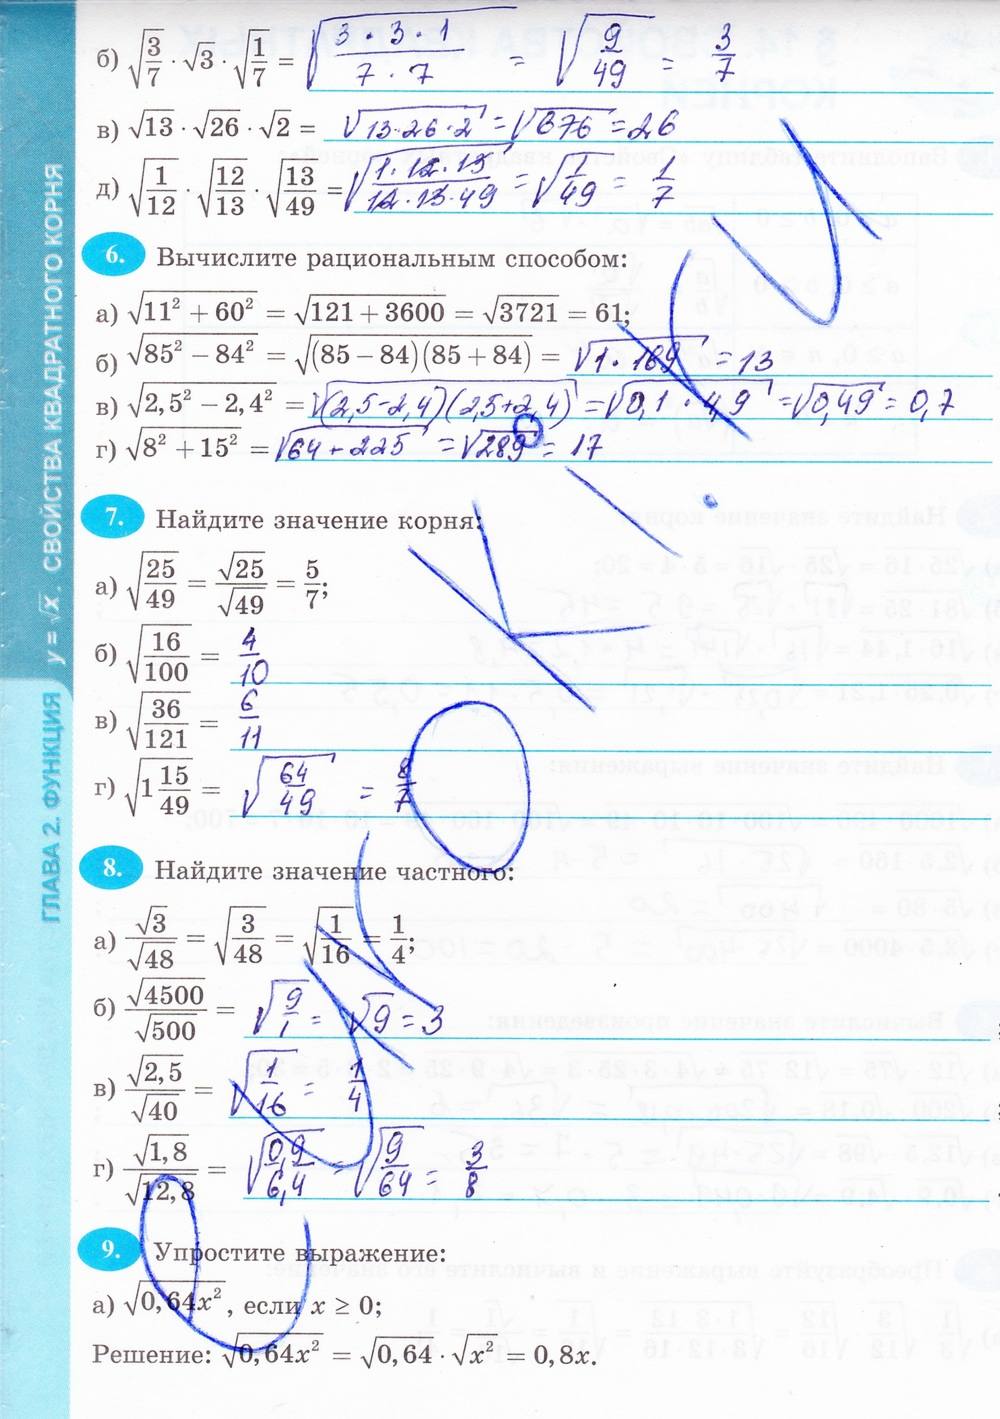 б) √(3/7) · √3 · √(1/7) = √((3 · 3 · 1)/(7 · 7)) = √(9/49) = 3/7
в) √13 · √26 · √2 = √(13·26·2) = √676 = 26
д) √(1/12) · √(12/13) · √(13/49) = √((1·12·13)/(12·13·49)) = √(1/49) = 1/7
6. Вычислите рациональным способом:
а) √(11² + 60²) = √(121 + 3600) = √3721 = 61;
б) √(85² − 84²) = √((85 − 84)(85 + 84)) = √(1·169) = 13
в) √(2,5² − 2,4²) = √((2,5-2,4)(2,5+2,4)) = √(0,1·4,9) = √0,49 = 0,7
г) √(8² + 15²) = √(64+225) = √289 = 17
7. Найдите значение корня:
а) √(25/49) = √25/√49 = 5/7;
б) √(16/100) = 4/10
в) √(36/121) = 6/11
г) √(1 15/49) = √(64/49) = 8/7
8. Найдите значение частного:
а) √3/√48 = √(3/48) = √(1/16) = 1/4;
б) √4500/√500 = √(9/1) = √9 = 3
в) √2,5/√40 = √(1/16) = 1/4
г) √1,8/√12,8 = √(0,9/6,4) = √(9/64) = 3/8
9. Упростите выражение:
а) √(0,64x²), если x ≥ 0;
Решение: √(0,64x²) = √0,64 · √x² = 0,8x.
ГЛАВА 2. ФУНКЦИЯ y = √x. СВОЙСТВА КВАДРАТНОГО КОРНЯ